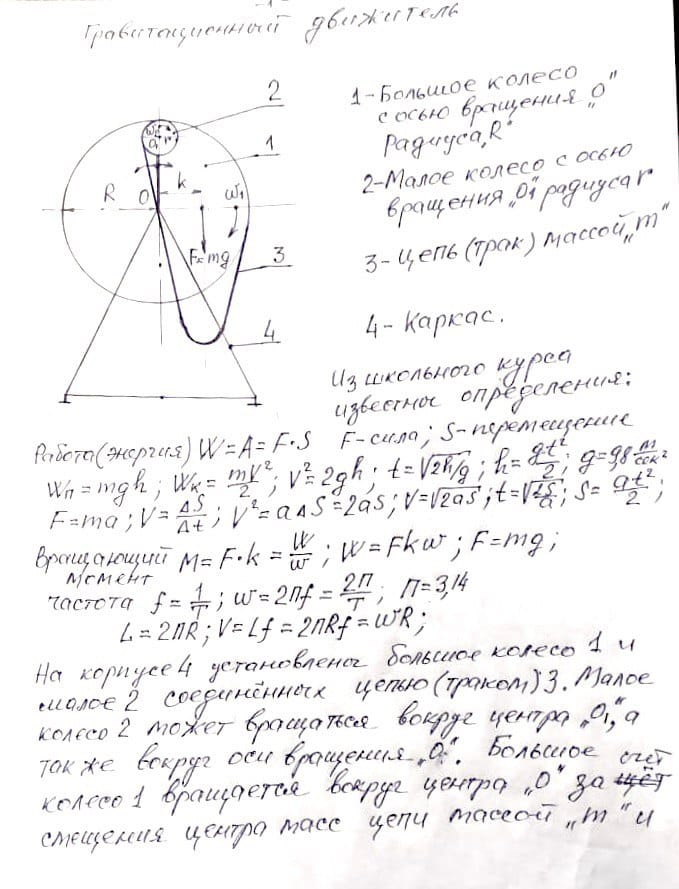 -1-
Гравитационный движитель
2
1
3
4
ω₂
O₁
r
R
O
k
ω₁
F=mg
1-Большое колесо
с осью вращения „O"
Радиуса „R"
2-Малое колесо с осью
вращения „O₁" радиуса r
3-Цепь(трак) массой „m"
4-Каркас.
Из школьного курса
известное определения:
Работа(энергия) W=A=F·S F-сила; S-перемещение
Wп=mgh; Wк=mV²/2; V²=2gh; t=√2h/g; h=gt²/2; g=9,8 м/сек²
F=ma; V=ΔS/Δt; V²=aΔS=2aS; V=√2aS; t=√2S/a; S=at²/2;
Вращающий M=F·k=W/ω; W=Fkω; F=mg;
момент
частота f=1/T; ω=2Пf=2П/T; П=3,14
L=2ПR; V=Lf=2ПRf=ωR;
На корпусе 4 установлены большое колесо 1 и
малое 2 соединённых цепью(траком) 3. Малое
колесо 2 может вращаться вокруг центра „O₁", а
так же вокруг оси вращения „O". Большое
колесо 1 вращается вокруг центра „O" за счёт
смещения центра масс цепи массой „m" и